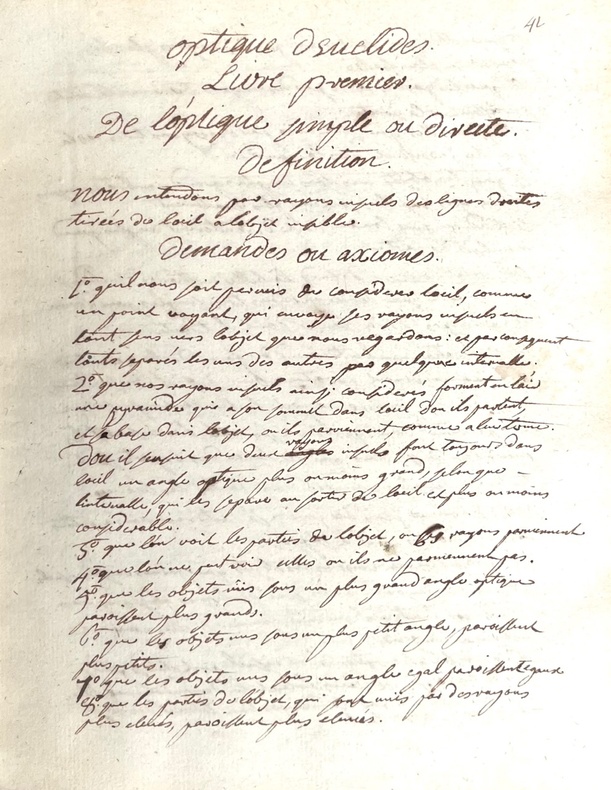 42
optique d'Euclides.
Livre premier.
De l'optique simple ou directe.
definition.
nous entendons par rayons visuels des lignes droites
tireés de loeil a lobjet visible.
demandes ou axiomes.
1.° quil nous soit permis de considerer loeil, comme
un point voyant, qui envoye ses rayons visuels en
tout sens vers lobjet que nous regardons: et par consequent
touts separés les uns des autres par quelque intervalle.
2.° que nos rayons visuels ainsi considerés forment en lair
une pyramide qui a son sommet dans loeil dou ils partent,
et sa base dans lobjet, ou ils parviennent comme a leur terme.
Dou il sensuit que deux rayons visuels font toujours dans
loeil un angle optique plus ou moins grand, selon que
lintervalle, qui les separe au sortir de loeil est plus ou moins
considerable.
3.° que lón voit les parties de lobjet, ou les rayons parviennent
4.° que lon ne peut voir celles ou ils ne parviennent pas.
5.° que les objets vûs sous un plus grand angle optique
paroissent plus grands.
6.° que les objets vus sous un plus petit angle, paroissent
plus petits.
7.° que les objets vus sous un angle egal paroissent egaux
8.° que les parties de lobjet, qui sont vuës par des rayons
plus elevés, paroissent plus elevés.